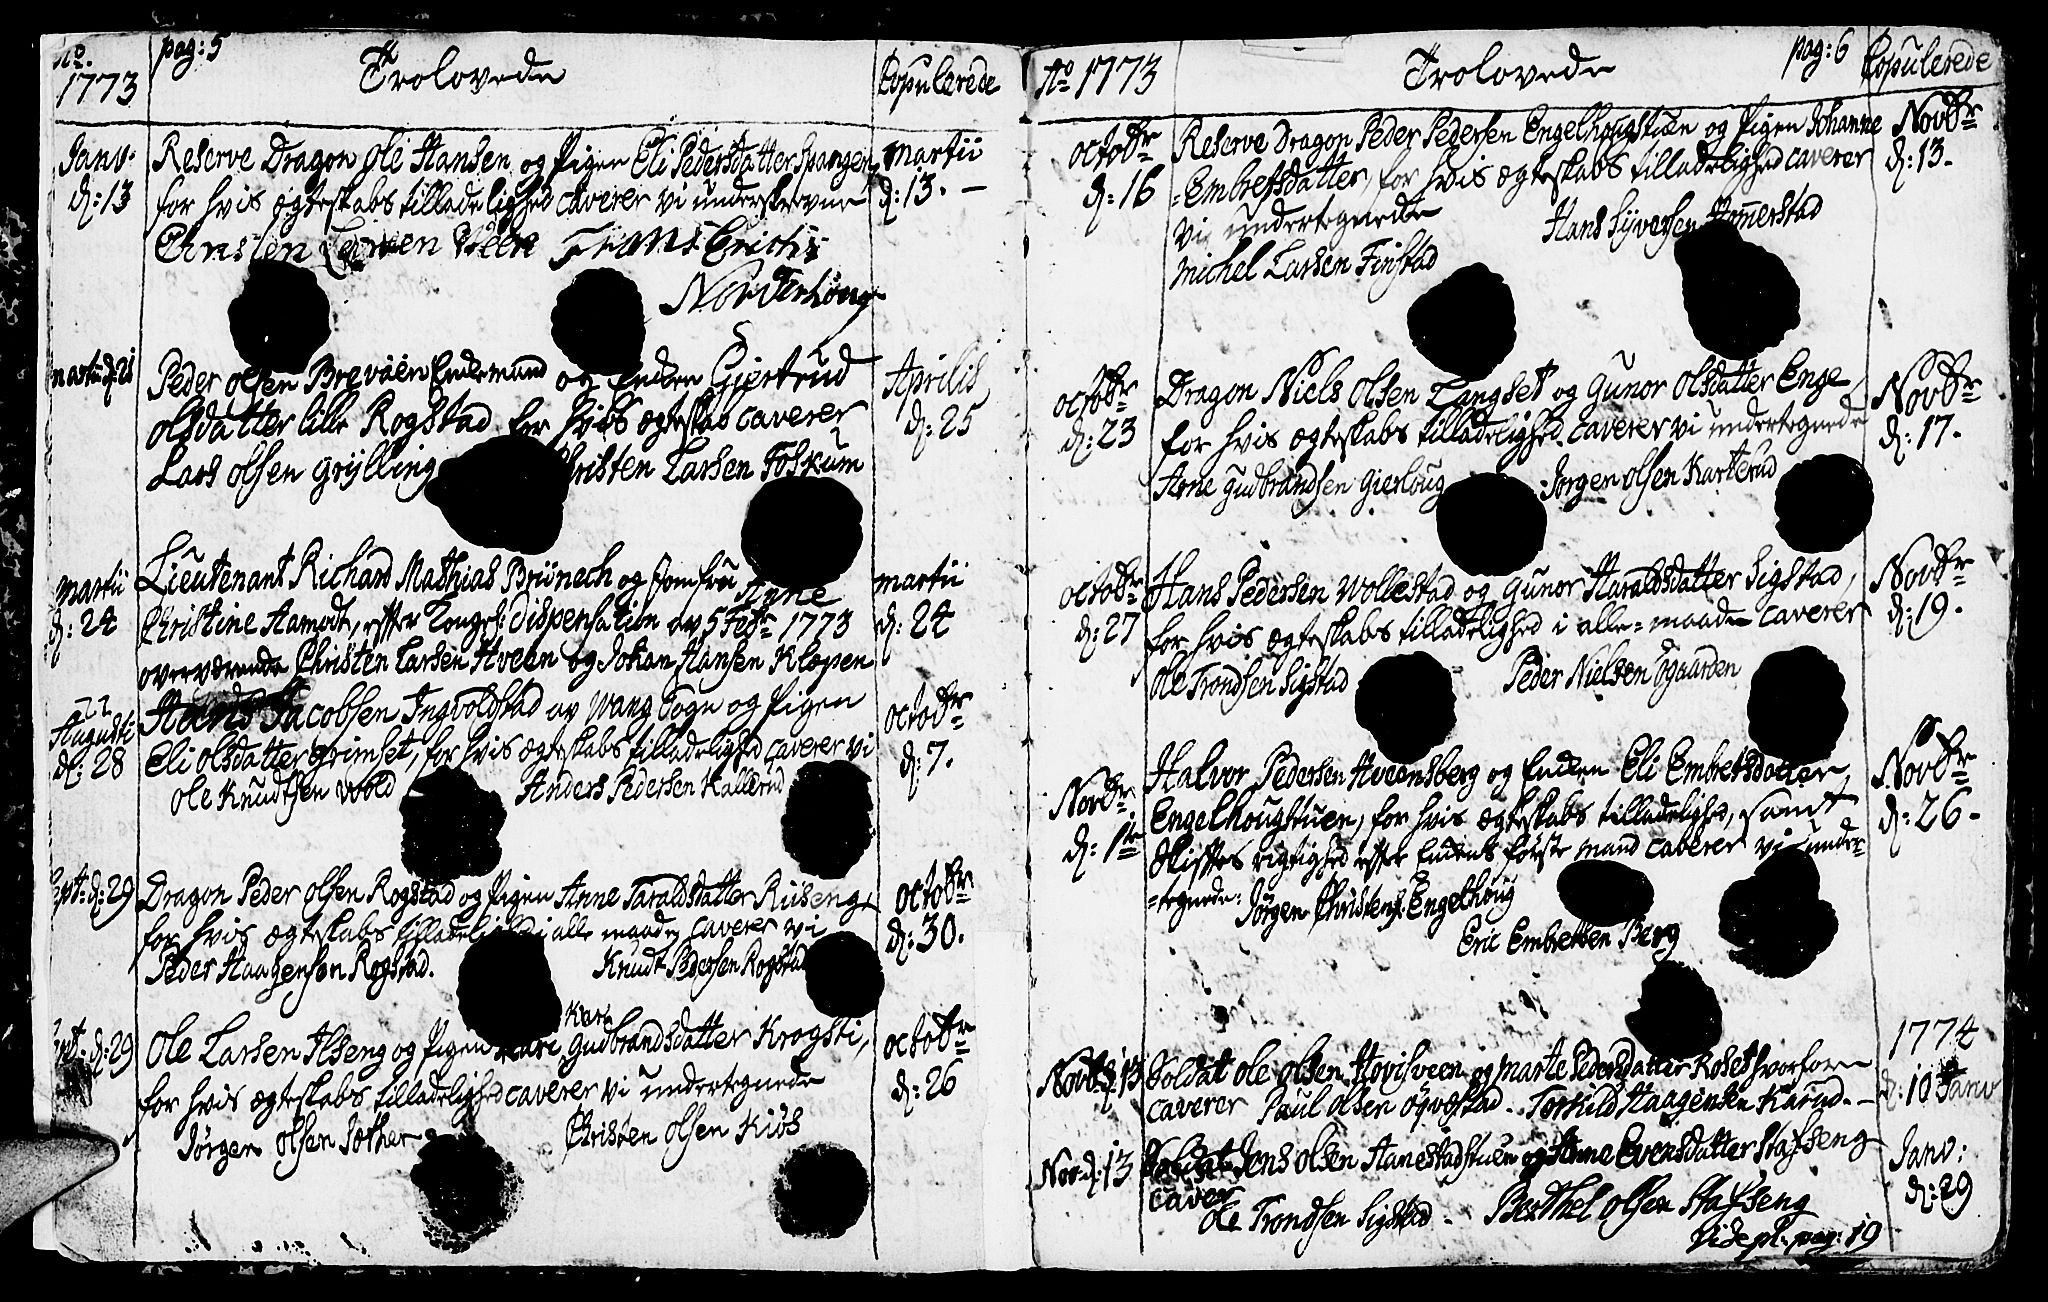 Ao.
1773
pag: 5
Trolovede
Copulerede
Janv:
d: 13
Reserve Dragon Ole Hansen og Pigen Eli Pedersdatter Spangen,
for hvis ægteskabs tilladelighed caverer vi underskrevne
Christen Larsen Veen Frans Erichs
Nordenhoug
Martii
d: 13. –
Martii d: 21
Peder Olsen Brevåen Enkemand og Enken Giertrud
Olsdatter lille Rogstad for hvis ægteskab caverer
Lars Olsen Grylling Christen Larsen Foskum
Aprilis
d: 25
Martii
d: 24
Lieutenant Richard Mathias Brünech og Jomfru Anne
Christine Aamodt, efter Kongel: Dispensation av 5 Febr. 1773
overværende Christen Larsen Hveen og Johan Hansen Kløpen
martii
d: 24
Augusti
d: 28
Hans Jacobsen Ingvoldstad av Wang Sogn og Pigen
Eli Olsdatter Grimset, for hvis ægteskabs tilladelighed caverer vi
Ole Knudtsen Wold Anders Pedersen Kallerud
octobr
d: 7.
Sept: d: 29
Dragon Peder Olsen Rogstad og Pigen Anne Taraldsdatter Ruseng,
for hvis ægteskabs tilladelighed i alle maader caverer vi
Peder Haagensøn Rogstad. Knudt Pedersen Rogstad
octobr
d: 30.
Sept: d: 29
Kari
Ole Larsen Alseng og Pigen Kari Gudbrandsdatter Krogsti,
for hvis ægteskabs tilladelighed caverer vi undertegnede
Jørgen Olsen Sæther Christen Olsen Kiøs
octobr
d: 26
Ao 1773
Trolovede
pag: 6
Copulerede
octobr
d: 16
Reserve Dragon Peder Pedersen Engelhougstuen og Pigen Johanne
=Embretsdatter, for hvis ægteskabs tilladelighed caverer
vi undertegnede Hans Syversen Hommerstad
Michel Larsen Finstad
Novbr
d: 13.
octobr
d: 23
Dragon Niels Olsen Langset og Gunor Olsdatter Enge
for hvis ægteskabs tilladelighed caverer vi undertegnede
Arne Gudbrandsen Gierloug Jørgen Olsen Karterud
Novbr
d: 17.
octobr
d: 27
Hans Pedersen Wollestad og Gunor Haraldsdatter Sigstad,
for hvis ægteskabs tilladelighed i alle=maader caverer
Ole Trondsen Sigstad Peder Nielsen Øgaarden
Novbr
d: 19.
Novbr
d: 1te
Halvor Pedersen Hveensberg og Enken Eli Embretsdatter
Engelhougstuen, for hvis ægteskabs tilladelighed, samt
Skiftes rigtighed efter Enkens første mand caverer vi under=
=tegnede: Jørgen Christens: Engelhoug
Eric Embretsen Berg
Novbr
d: 26.
Novbr d: 13
Soldat Ole Olsen Hovisveen og Marte Pedersdatter Roset hvorfor
caverer Paul Olsen Øqvestad. Torkild Haagensen Karud. –
1774
d: 10 Janv
Nov: d: 13
Soldat Jens Olsen Hanestadstuen og Anne Evensdatter Stafseng
caver
Ole Trondsen Sigstad – Berthel Olsen Stafseng
Janv:
d: 29
Vide pl: pag: 19